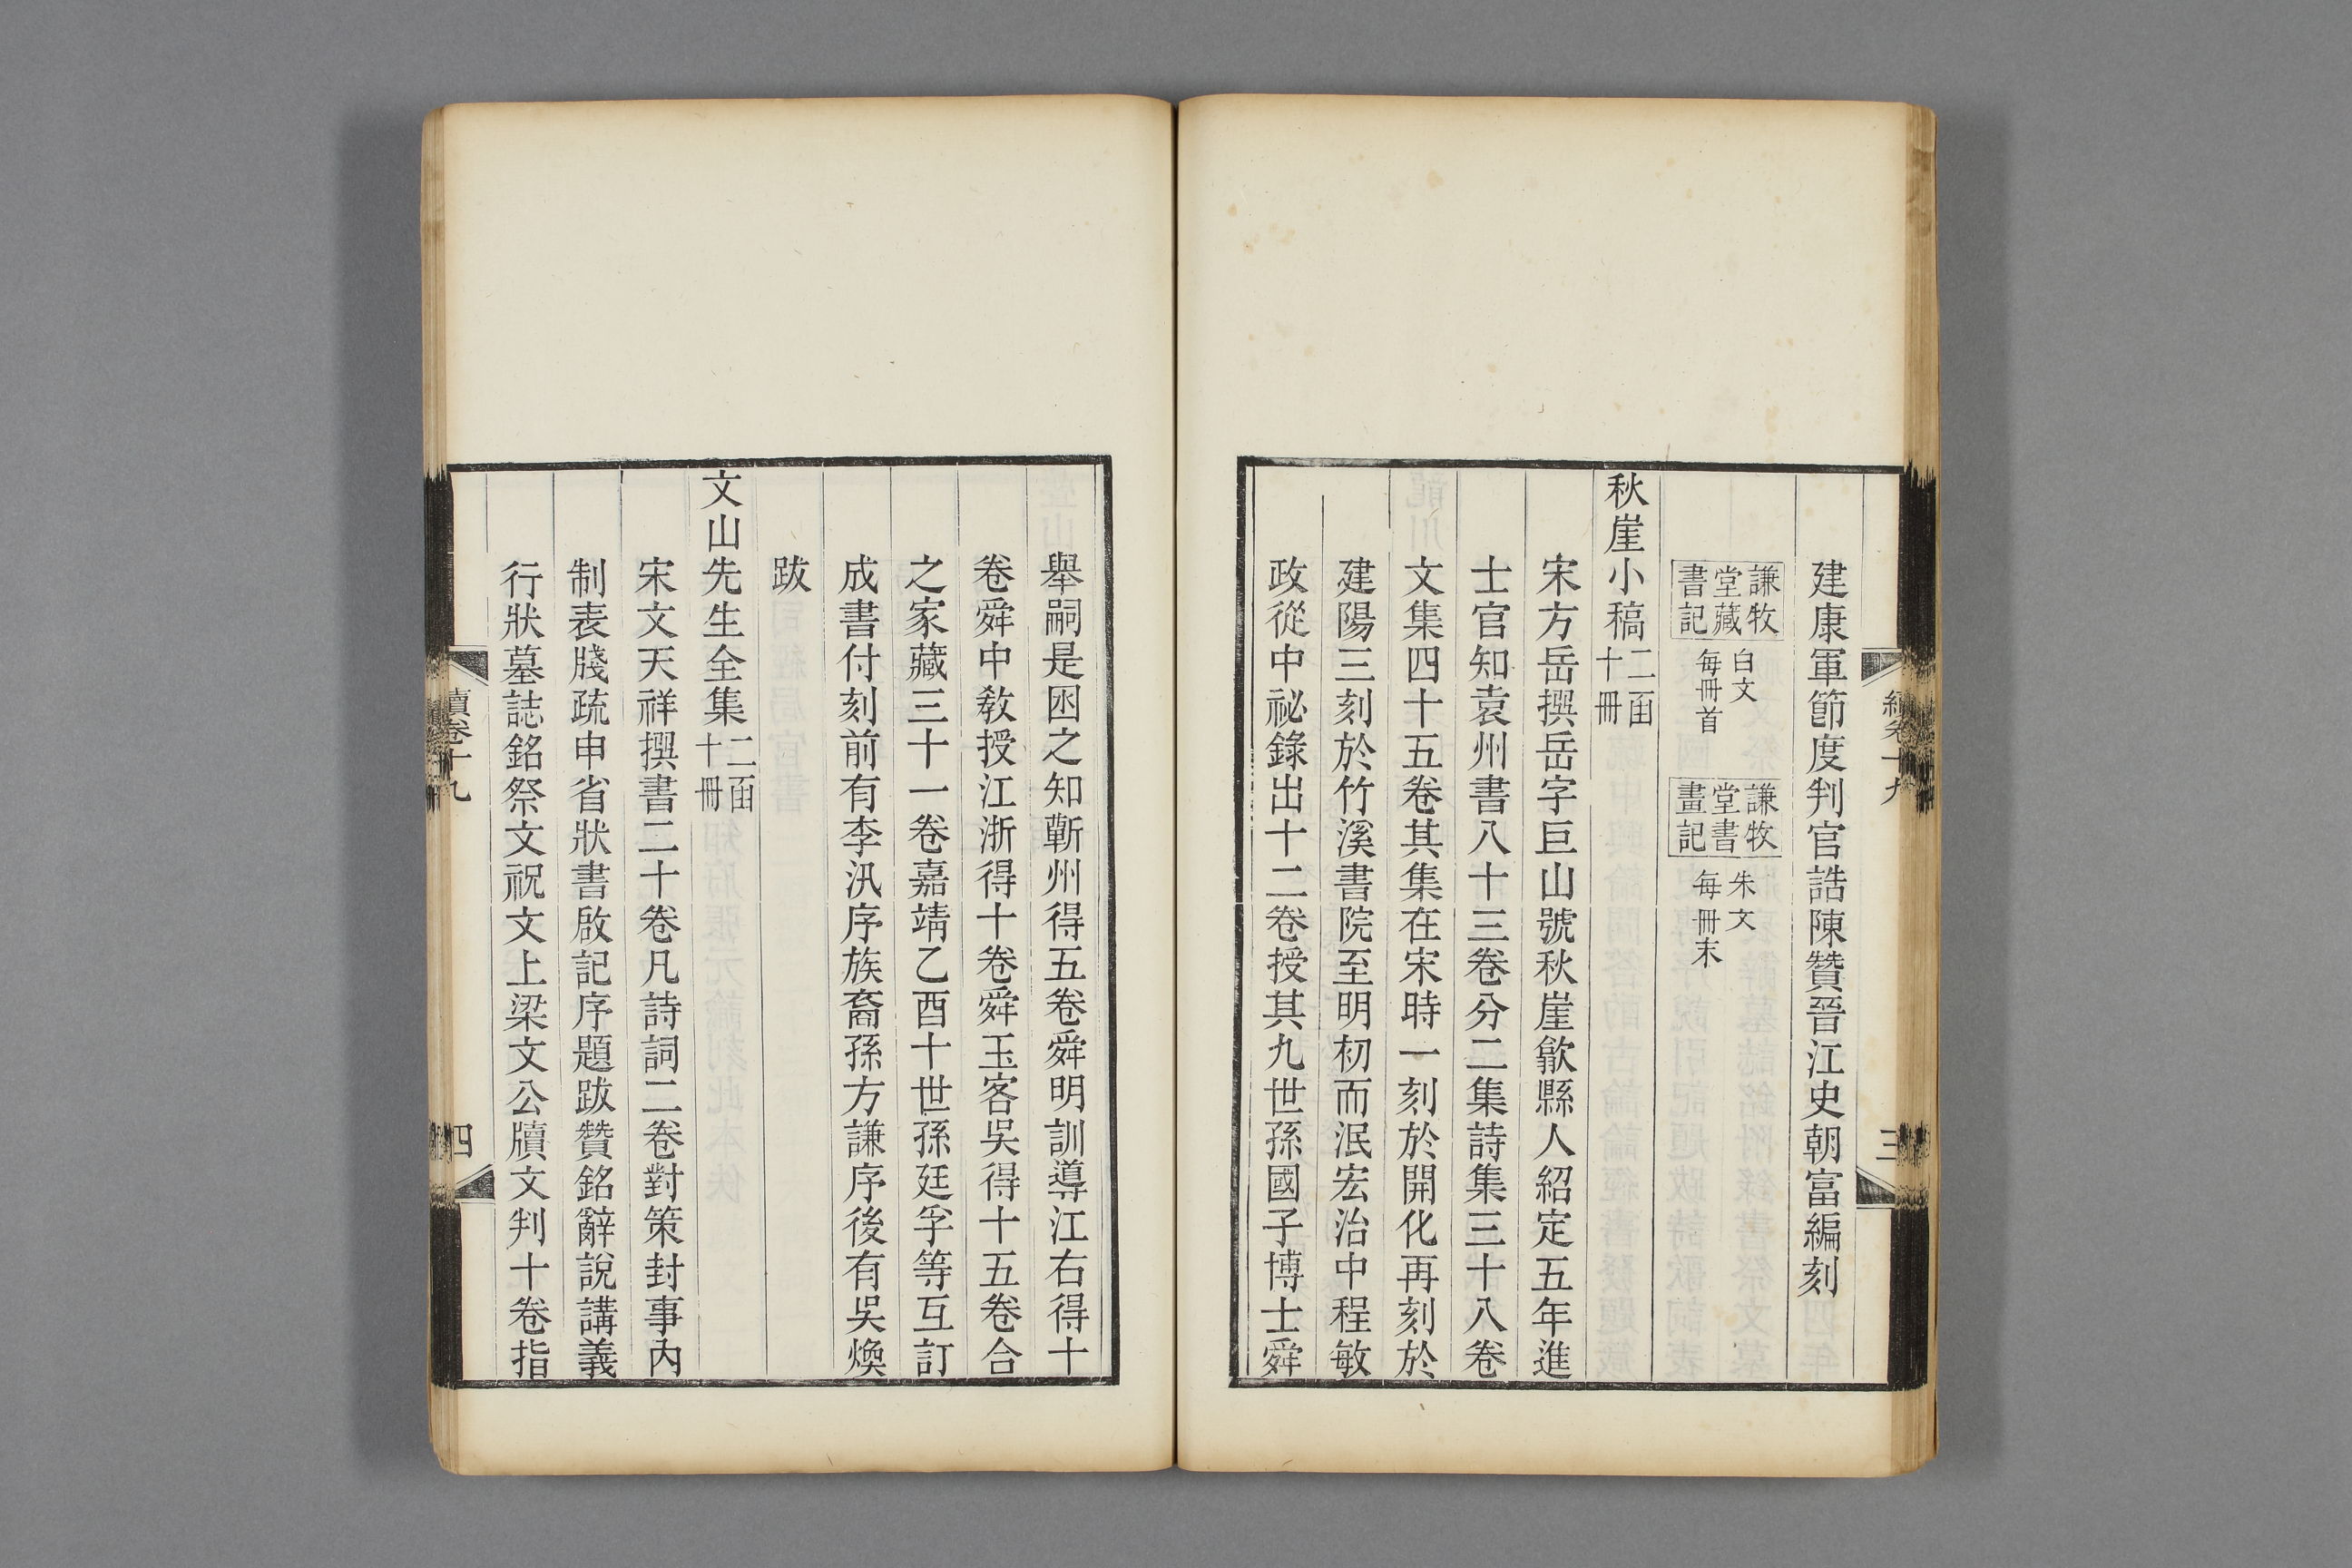 建康軍節度判官誥陳贊晉江史朝富編刻
謙牧堂藏書記 白文每冊首 謙牧堂書畫記 朱文每冊末
秋崖小稿 二函十冊
宋方岳撰岳字巨山號秋崖歙縣人紹定五年進
士官知袁州書八十三卷分二集詩集三十八卷
文集四十五卷其集在宋時一刻於開化再刻於
建陽三刻於竹溪書院至明初而泯宏治中程敏
政從中祕錄出十二卷授其九世孫國子博士舜
舉嗣是困之知蘄州得五卷舜明訓導江右得十
卷舜中教授江浙得十卷舜玉客吳得十五卷合
之家藏三十一卷嘉靖乙酉十世孫廷孚等互訂
成書付刻前有李汛序族裔孫方謙序後有吳煥
跋
文山先生全集 二函十冊
宋文天祥撰書二十卷凡詩詞二卷對策封事內
制表牋疏申省狀書啟記序題跋贊銘辭說講義
行狀墓誌銘祭文祝文上梁文公牘文判十卷指
續卷十九
四